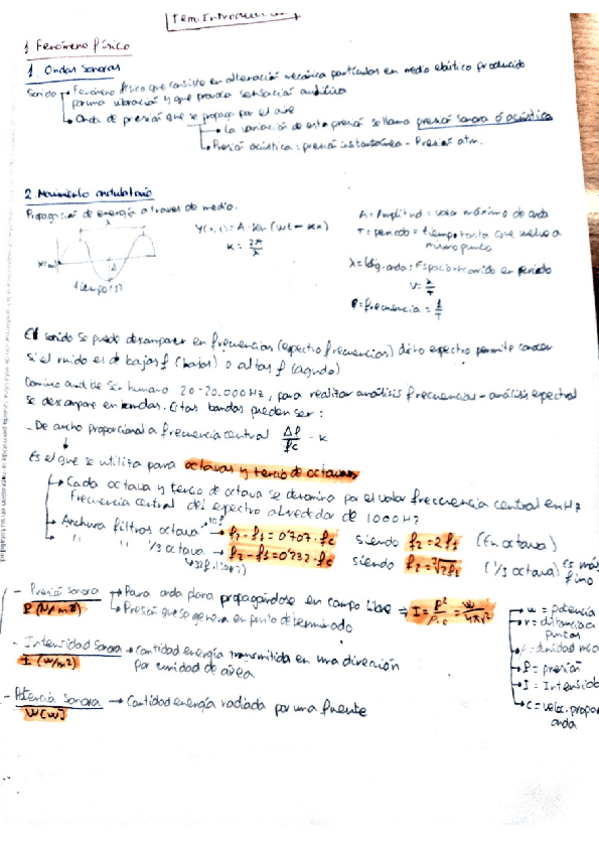 Tem. Introducción
1 Fenómeno físico
1. Ondas sonoras
Sonido → Fenómeno físico que consiste en alteración mecánica partículas en medio elástico producido
por una vibración y que provoca sensación auditiva
→ Onda de presión que se propaga por el aire
→ La variación de esta presión se llama presión sonora ó acústica
→ Presión acústica = presión instantánea - Presión atm.
2. Movimiento ondulatorio
Propagación de energía a traves de medio.
Y(x,t) = A · sen (wt - kx)
k = 2π/λ
tiempo(s)
A = Amplitud = valor máximo de onda
T = periodo = tiempo tarda que vuelve a
mismo punto
λ = long. onda = Espacio recorrido en periodo
V = λ/T
f = frecuencia = 1/T
El sonido se puede descomponer en frecuencias (espectro frecuencias) dicho espectro permite conocer
si el ruido es de bajas f (bajos) o altas f (agudo)
Dominio aud. de ser humano 20-20.000 Hz, para realizar análisis frecuencias - análisis espectral
se descompone en bandas. Estas bandas pueden ser:
- De ancho proporcional a frecuencia central Δf/fc - k
Es el que se utiliza para octavas y tercio de octavas
→ Cada octava y tercio de octava se denomina por el valor freccuencia central en Hz
Frecuencia central del espectro alrededor de 1000 Hz
→ Anchura filtros octava → f2 - f1 = 0'707 · fc siendo f2 = 2f1 (En octava)
" " 1/3 octava → f2 - f1 = 0'232 · fc siendo f2 = ∛2f1 (1/3 octava) Es más
fino
- Presión sonora → Para onda plana propagándose en campo libre ⇒ I = P²/ρ.c = W/4πr²
P (N/m²) → Presión que se genera en punto determinado
- Intensidad sonora → Cantidad energía transmitida en una dirección
I (w/m²) por unidad de area
- Potencia sonora → Cantidad energía radiada por una fuente
W (w)
→ w = potencia
→ r = distancia a
puntos
→ P = presión
→ I = Intensidad
→ C = veloc. propor
onda